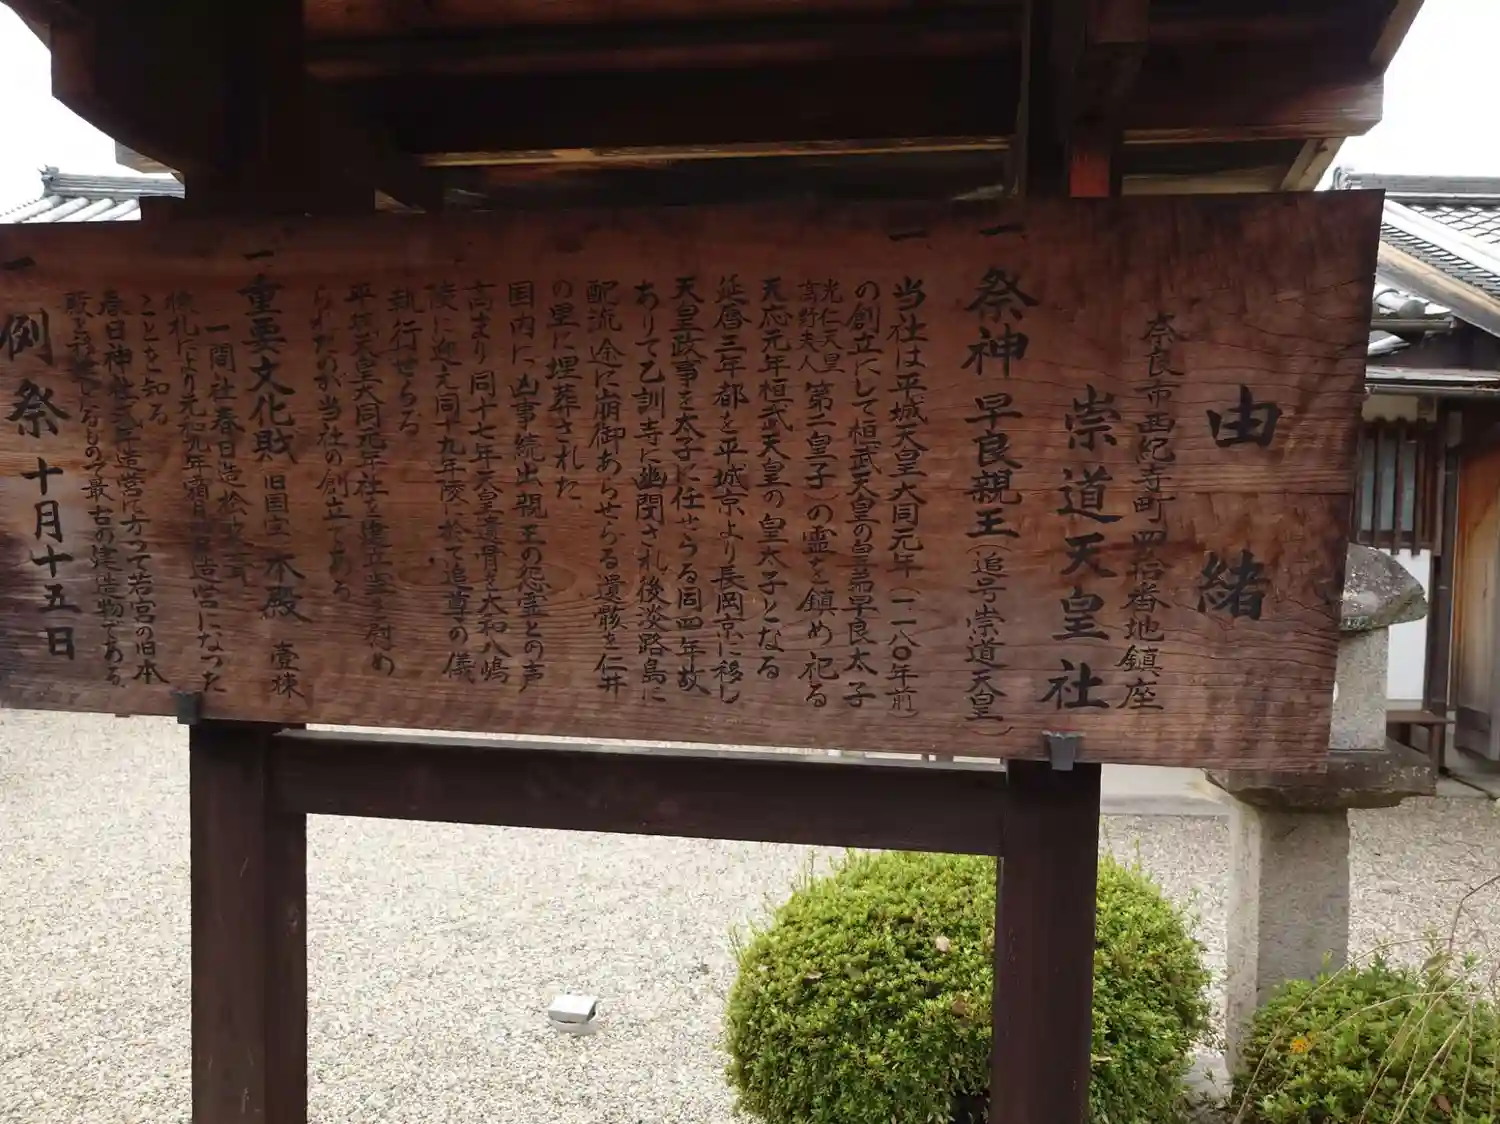 由緒
奈良市西紀寺町四拾番地鎮座
崇道天皇社
一、祭神 早良親王(追号崇道天皇)
一、当社は平城天皇大同元年(一一八〇年前)
の創立にして桓武天皇の皇弟早良太子
光仁天皇
高野夫人
第二皇子)の霊を鎮め祀る
天応元年桓武天皇の皇太子となる
延暦三年都を平城京より長岡京に移し
天皇政事を太子に任せらる同四年故
ありて乙訓寺に幽閉され後淡路島に
配流途に崩御あらせらる遺骸を仁井
の里に埋葬された
国内に凶事続出親王の怨霊との声
高まり同十七年天皇遺骨を大和八嶋
陵に迎え同十九年陵に於て追尊の儀
執行せらる
平城天皇大同元年社を建立霊を慰め
られたのが当社の創立である
一、重要文化財 旧国宝 本殿 壹棟
一間社春日造桧皮葺
棟札により元和九年霜月造営になつた
ことを知る
春日神社式年造営に方つて若宮の旧本
殿を移したるもので最古の建造物である
一、例祭 十月十五日